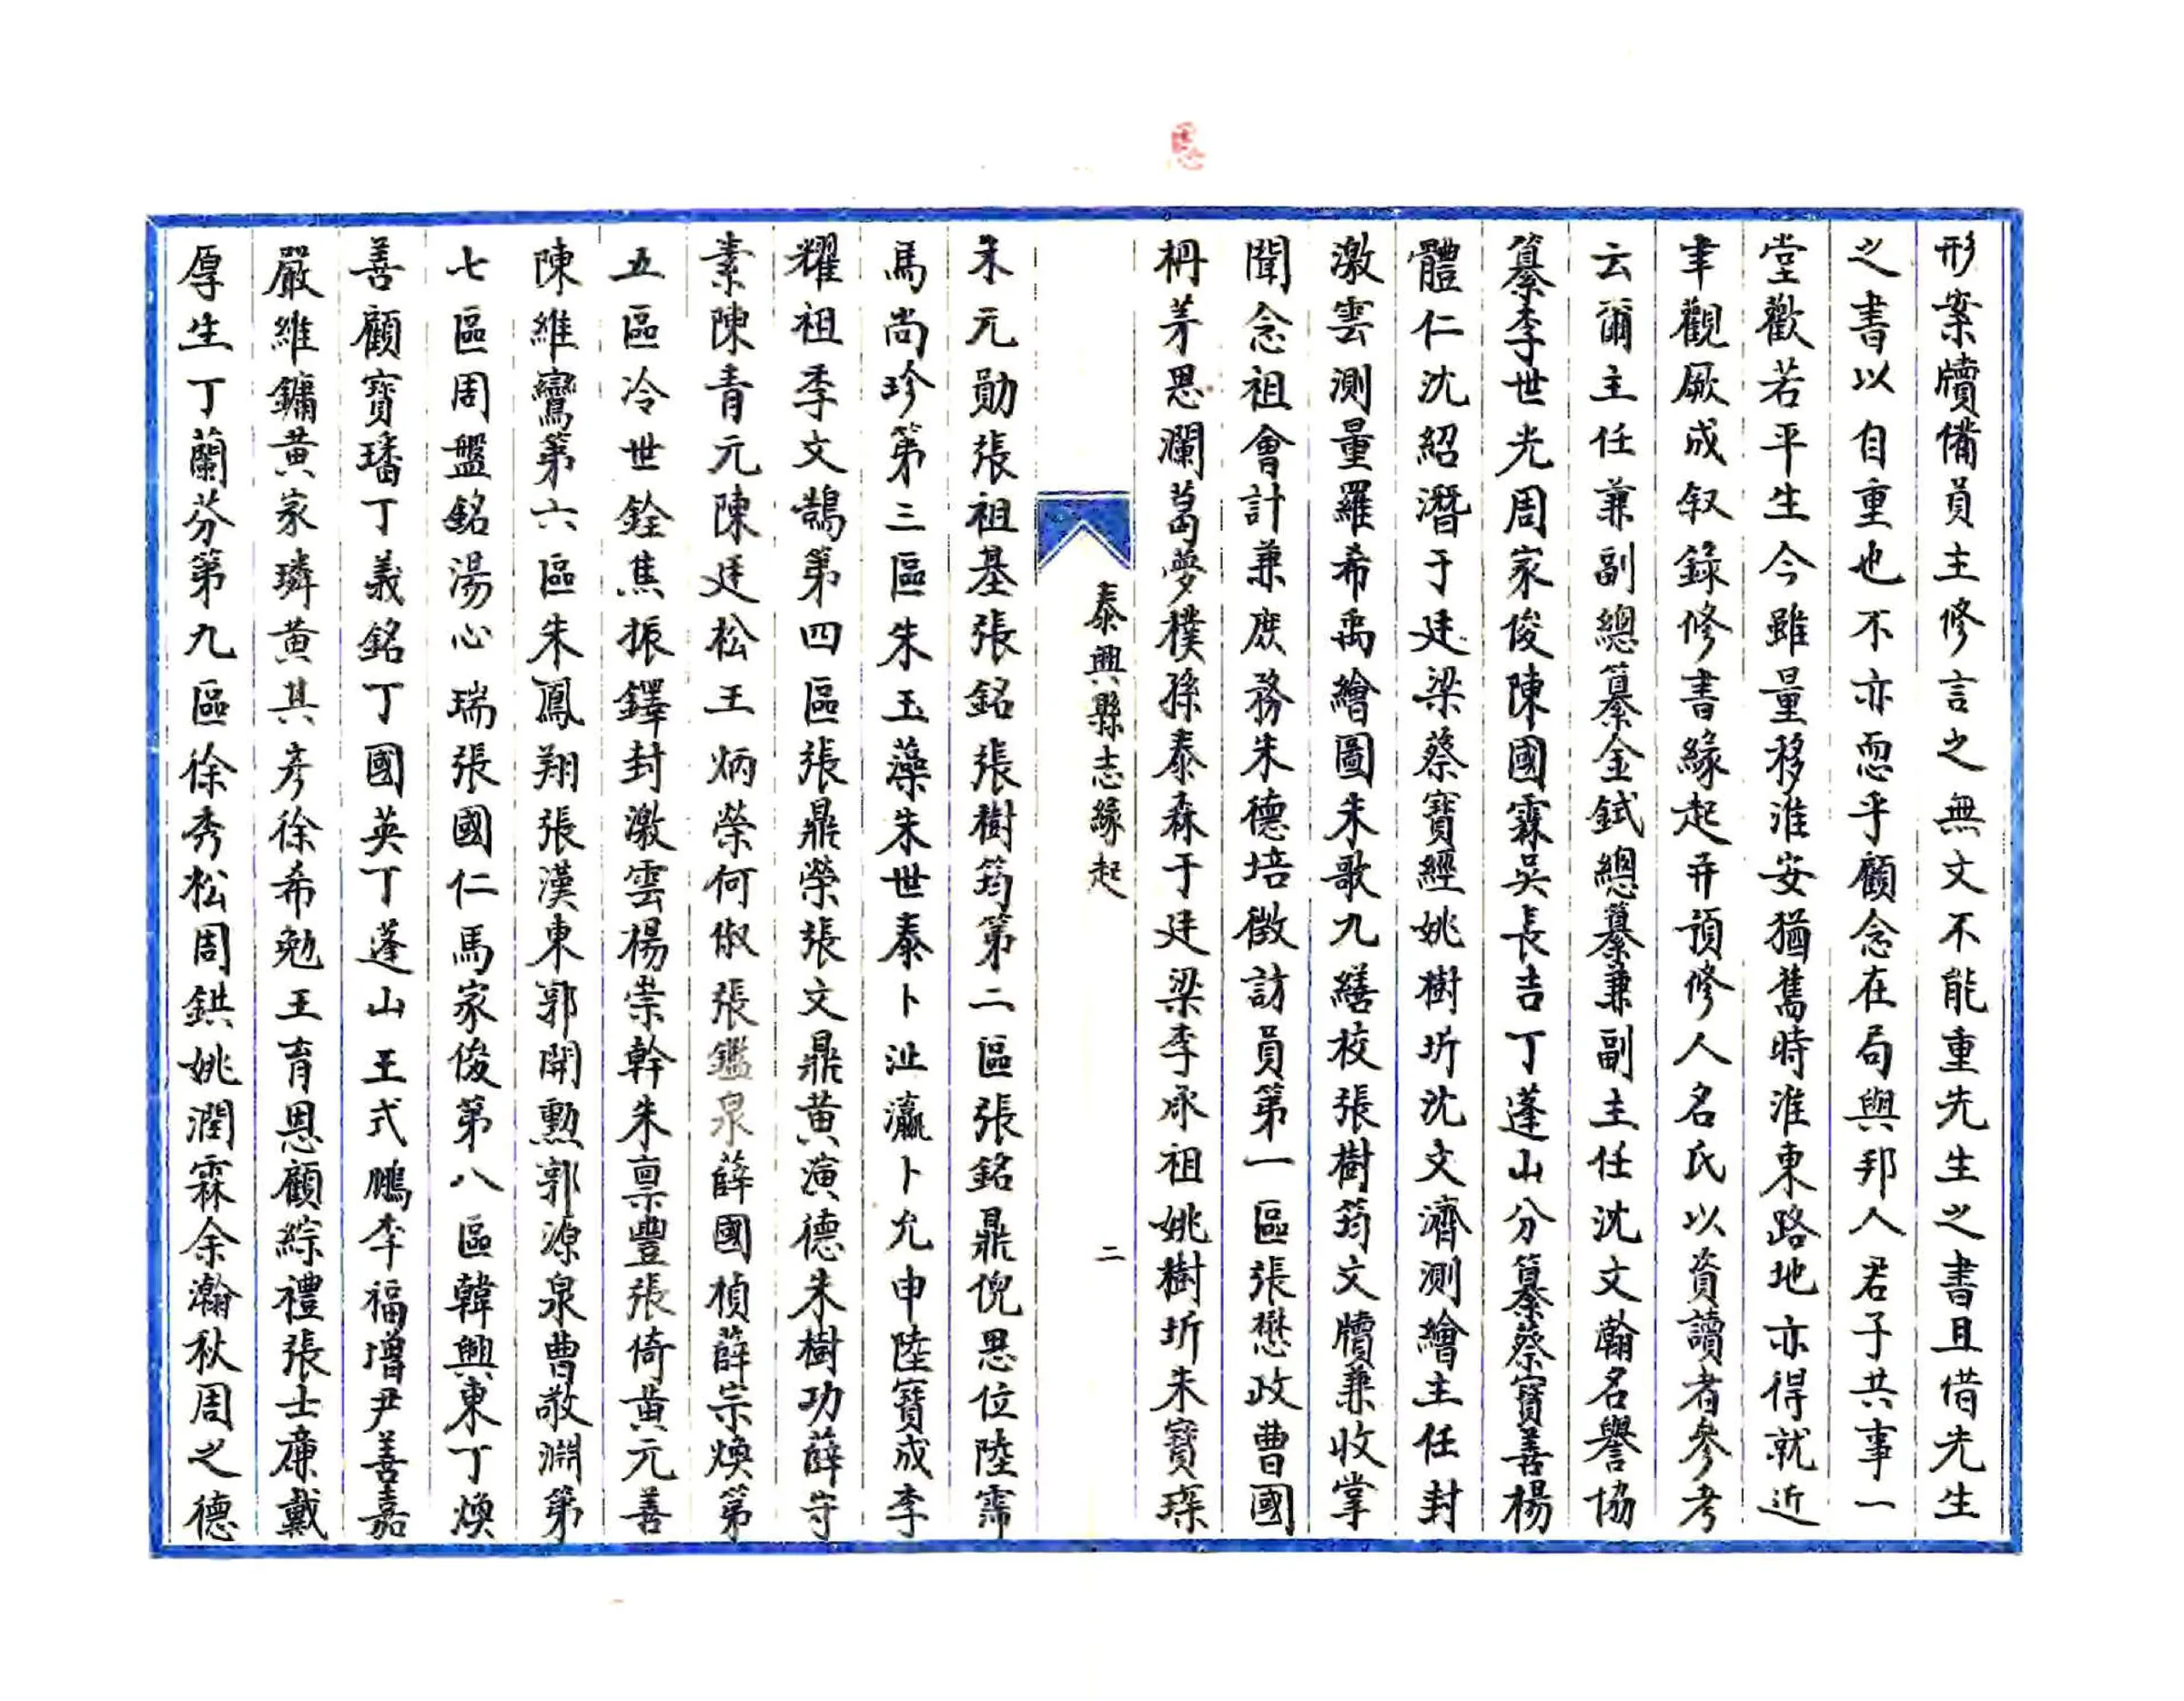 形案牘備員主修言之無文不能重先生之書且借先生
之書以自重也不亦恧乎顧念在局與邦人君子共事一
堂歡若平生今雖量移淮安猶舊時淮東路地亦得就近
聿觀厥成叙錄修書緣起并預修人名氏以資讀者參考
云爾主任兼副總纂金鉽總纂兼副主任沈文瀚名譽協
纂李世光周家俊陳國霖吳長吉丁蓬山分纂蔡寶善楊
體仁沈紹潛于廷梁蔡寶經姚樹圻沈文濟測繪主任封
激雲測量羅希禹繪圖朱歌九繕校張樹筠文牘兼收掌
聞念祖會計兼庶務朱德培徵訪員第一區張懋政曹國
枬茅思瀾葛夢樸孫泰森于廷梁李承祖姚樹圻朱寶琛
泰興縣志緣起 二
朱元勛張祖基張銘張樹筠第二區張銘鼎倪思位陸霈
馬尚珍第三區朱玉藻朱世泰卜沚瀛卜允申陸寶成李
耀祖季文鵠第四區張鼎榮張文鼎黃演德朱樹功薛守
素陳青元陳廷松王炳榮何俶張鑑泉薛國楨薛宗煥第
五區冷世銓焦振鐸封激雲楊崇幹朱禀豐張倚黃元善
陳維鸞第六區朱鳳翔張漢東郭開勳郭源泉曹敬淵第
七區周盤銘湯心瑞張國仁馬家俊第八區韓興東丁煥
善顧寶璠丁義銘丁國英丁蓬山王式鵬李福增尹善嘉
嚴維鏞黃家璘黃其彥徐希勉王育恩顧綜禮張士廉戴
厚生丁蘭芬第九區徐秀松周鉷姚潤霖余瀚秋周之德